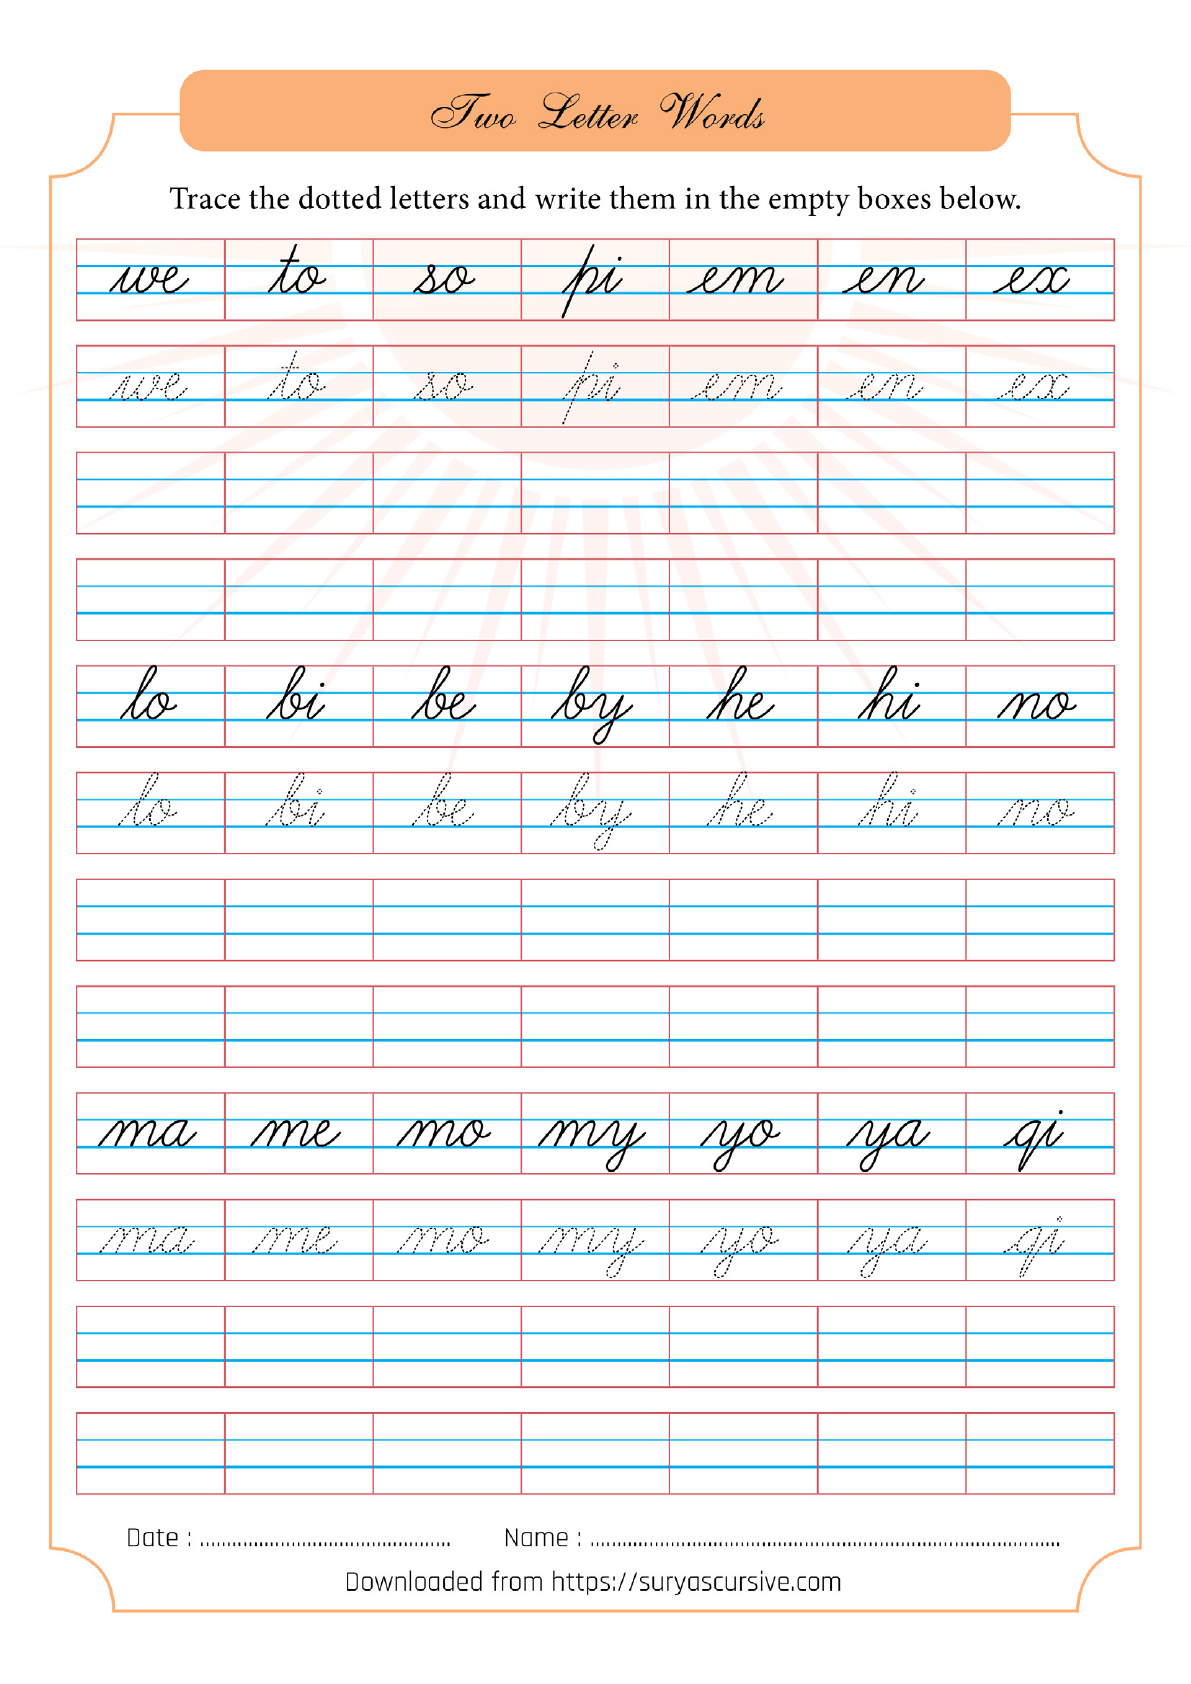 Two Letter Words
Trace the dotted letters and write them in the empty boxes below.
we to so pi em en ex
we to so pi em en ex
lo bi be by he hi no
lo bi be by he hi no
ma me mo my yo ya qi
ma me mo my yo ya qi
Date : ............................................... Name : .........................................................................................
Downloaded from https://suryascursive.com